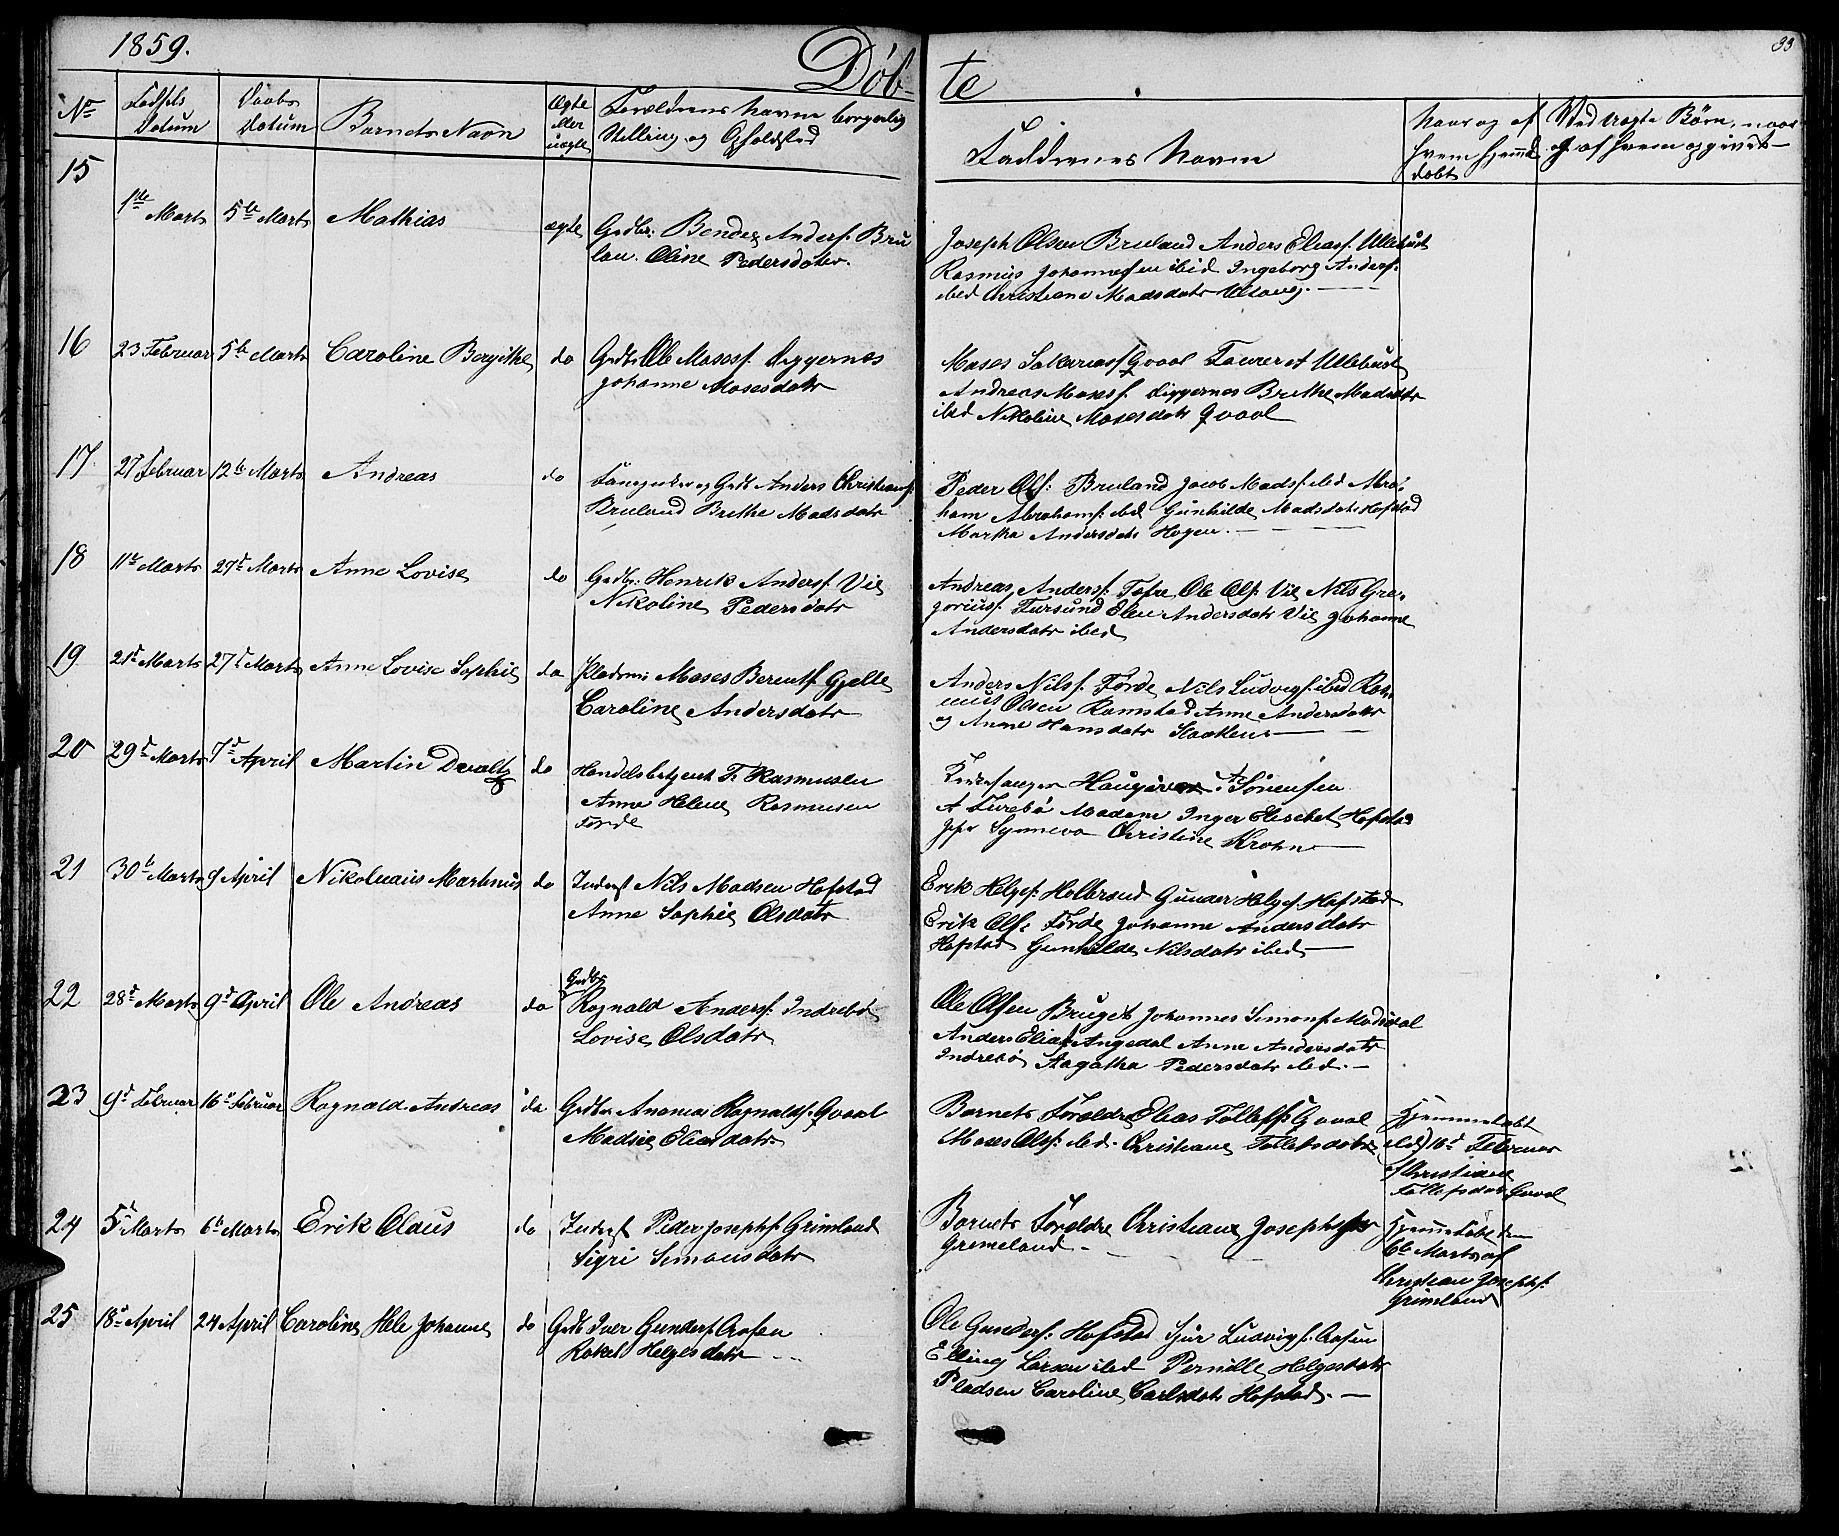 1859.
Döb-
te
33
No
Fødsels Datum
Daabs Datum
Barnets Navn
Ægte eller uægte
Forældrenes Navne borgerlig Stilling og Opholdsted
Faddrenes Navne
Naar og af hvem hjemmedøbt
15
1ste Marts 5te Marts Mathias
ægte
Grdbr: Bendix Anders. Bru
lan. Oline Pedersdater.
Joseph Olsen Bruland Anders Eliass. Ullebust
Rasmus Johannessen ibid Ingeborg Anders.
ibid Christiane Madsdatr
16
23 Februar 5te Marts Caroline Bergithe
do
Grdbr Ole Moses. Diggernes
Johanne Mosesdatr
Moses Qvaal Ullebust
Andreas Moses. Diggernes Brethe Madsdatr
ibid Nikoline Mosesdatr Qvaal
17.
27 Februar 12te Marts Andreas
do
Gdbr Anders Christians.
Bruland Brethe Madsdatr
Peder Ols: Bruland Jacob Mads. ibid Abra-
ham Abrahams. ibd Gunhilde Madsdatr Hafstad
Martha Andersdatr Hagen.
18
11te Marts 27de Marts Anne Lovise
do
Grdbr: Henrik Anders. Vie
Nikoline Pedersdatr
Andreas Anders. Tefre Ole Ols. Vie Nils Gre-
gorius. Farsund Elen Andersdatr Vie Johanne
Andersdatr ibid
19
21de Marts 27de Marts Anne Lovise Sophie
do
Pladsm: Moses Berents. Gjelle
Caroline Andersdatr
Anders Nils. Førde Nils Ludvigs. ibid Ras-
mus Olsen Ramstad Anne Andersdatr
og Anne Hansdatr
20
29de Marts 7de April Martin
do
Handelsbetjent F. Rasmusen
Anne Helene Rasmusen
Førde
Kirkesanger A. Sørensen
A Furebø Madame Inger Elisebet Hafstad
Jfr Synneva Christine Krohn
21
30te Marts 9 April Nikoluaus Martinus
do
Inderst Nils Madsen Hafstad
Anne Sophie Olsdatr
Erik Helges. Halbrend Gunder Helges. Hafstad
Erik Ols: Førde Johanne Andersdatr
Hafstad Gunhilde Nilsdatr ibid
22
28de Marts 9de April Ole Andreas
do
Grdbr
Ragnald Anders. Indrebø
Lovise Olsdatr
Ole Olsen Bruget Johannes Simons.
Anders Elias. Angedal Anne Andersdatr
Indrebø Aagatha Pedersdatr ibd.
23
9de Februar 16de Februar Ragnald Andreas
do
Grdbr Ananias Ragnalds. Qvaal
Madsie Eliasdatr
Barnets Forældre Elias Tollefs. Qvaal
Moses Ols: ibd. Christiane Tollefsdatr
Hjemmedøbt
16de Februar
af Christiane
Tollefsdatr Qvaal
24
5te Marts 6te Marts Erik Olaus
do
Inderst Peder Josephs. Grimland
Sigri Simonsdatr
Barnets Forældre Christiane Josephs
Grimeland
Hjemmedøbt den
6te Marts af
Christian Josephs.
Grimland
25
18de April 24 April Caroline Hele Johanne
do
Grdb Iver Gunders. Aasen
Rakel Helgesdatr
Ole Gunders. Hafstad Sjur Ludvigs. Aasen
Elling Larsen ibid Pernille Helgesdatr
Pladsen Caroline Carlsdatr Hafstad.